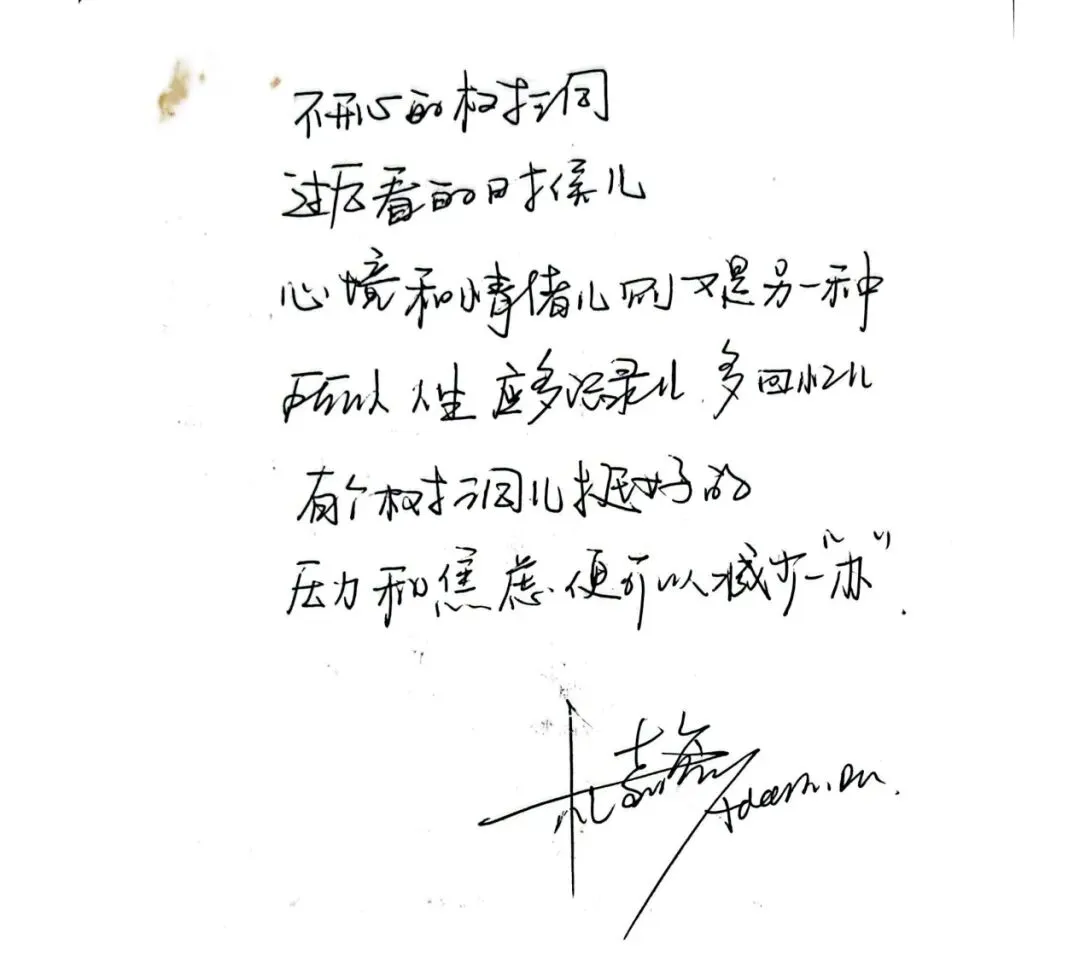 不开心的树洞
过后看的时候儿
心境和情绪儿则又是另一种
所以人生应多记录儿 多回忆儿
有个树洞儿挺好的
压力和焦虑便可以减少一“办”.
Adam.Du.